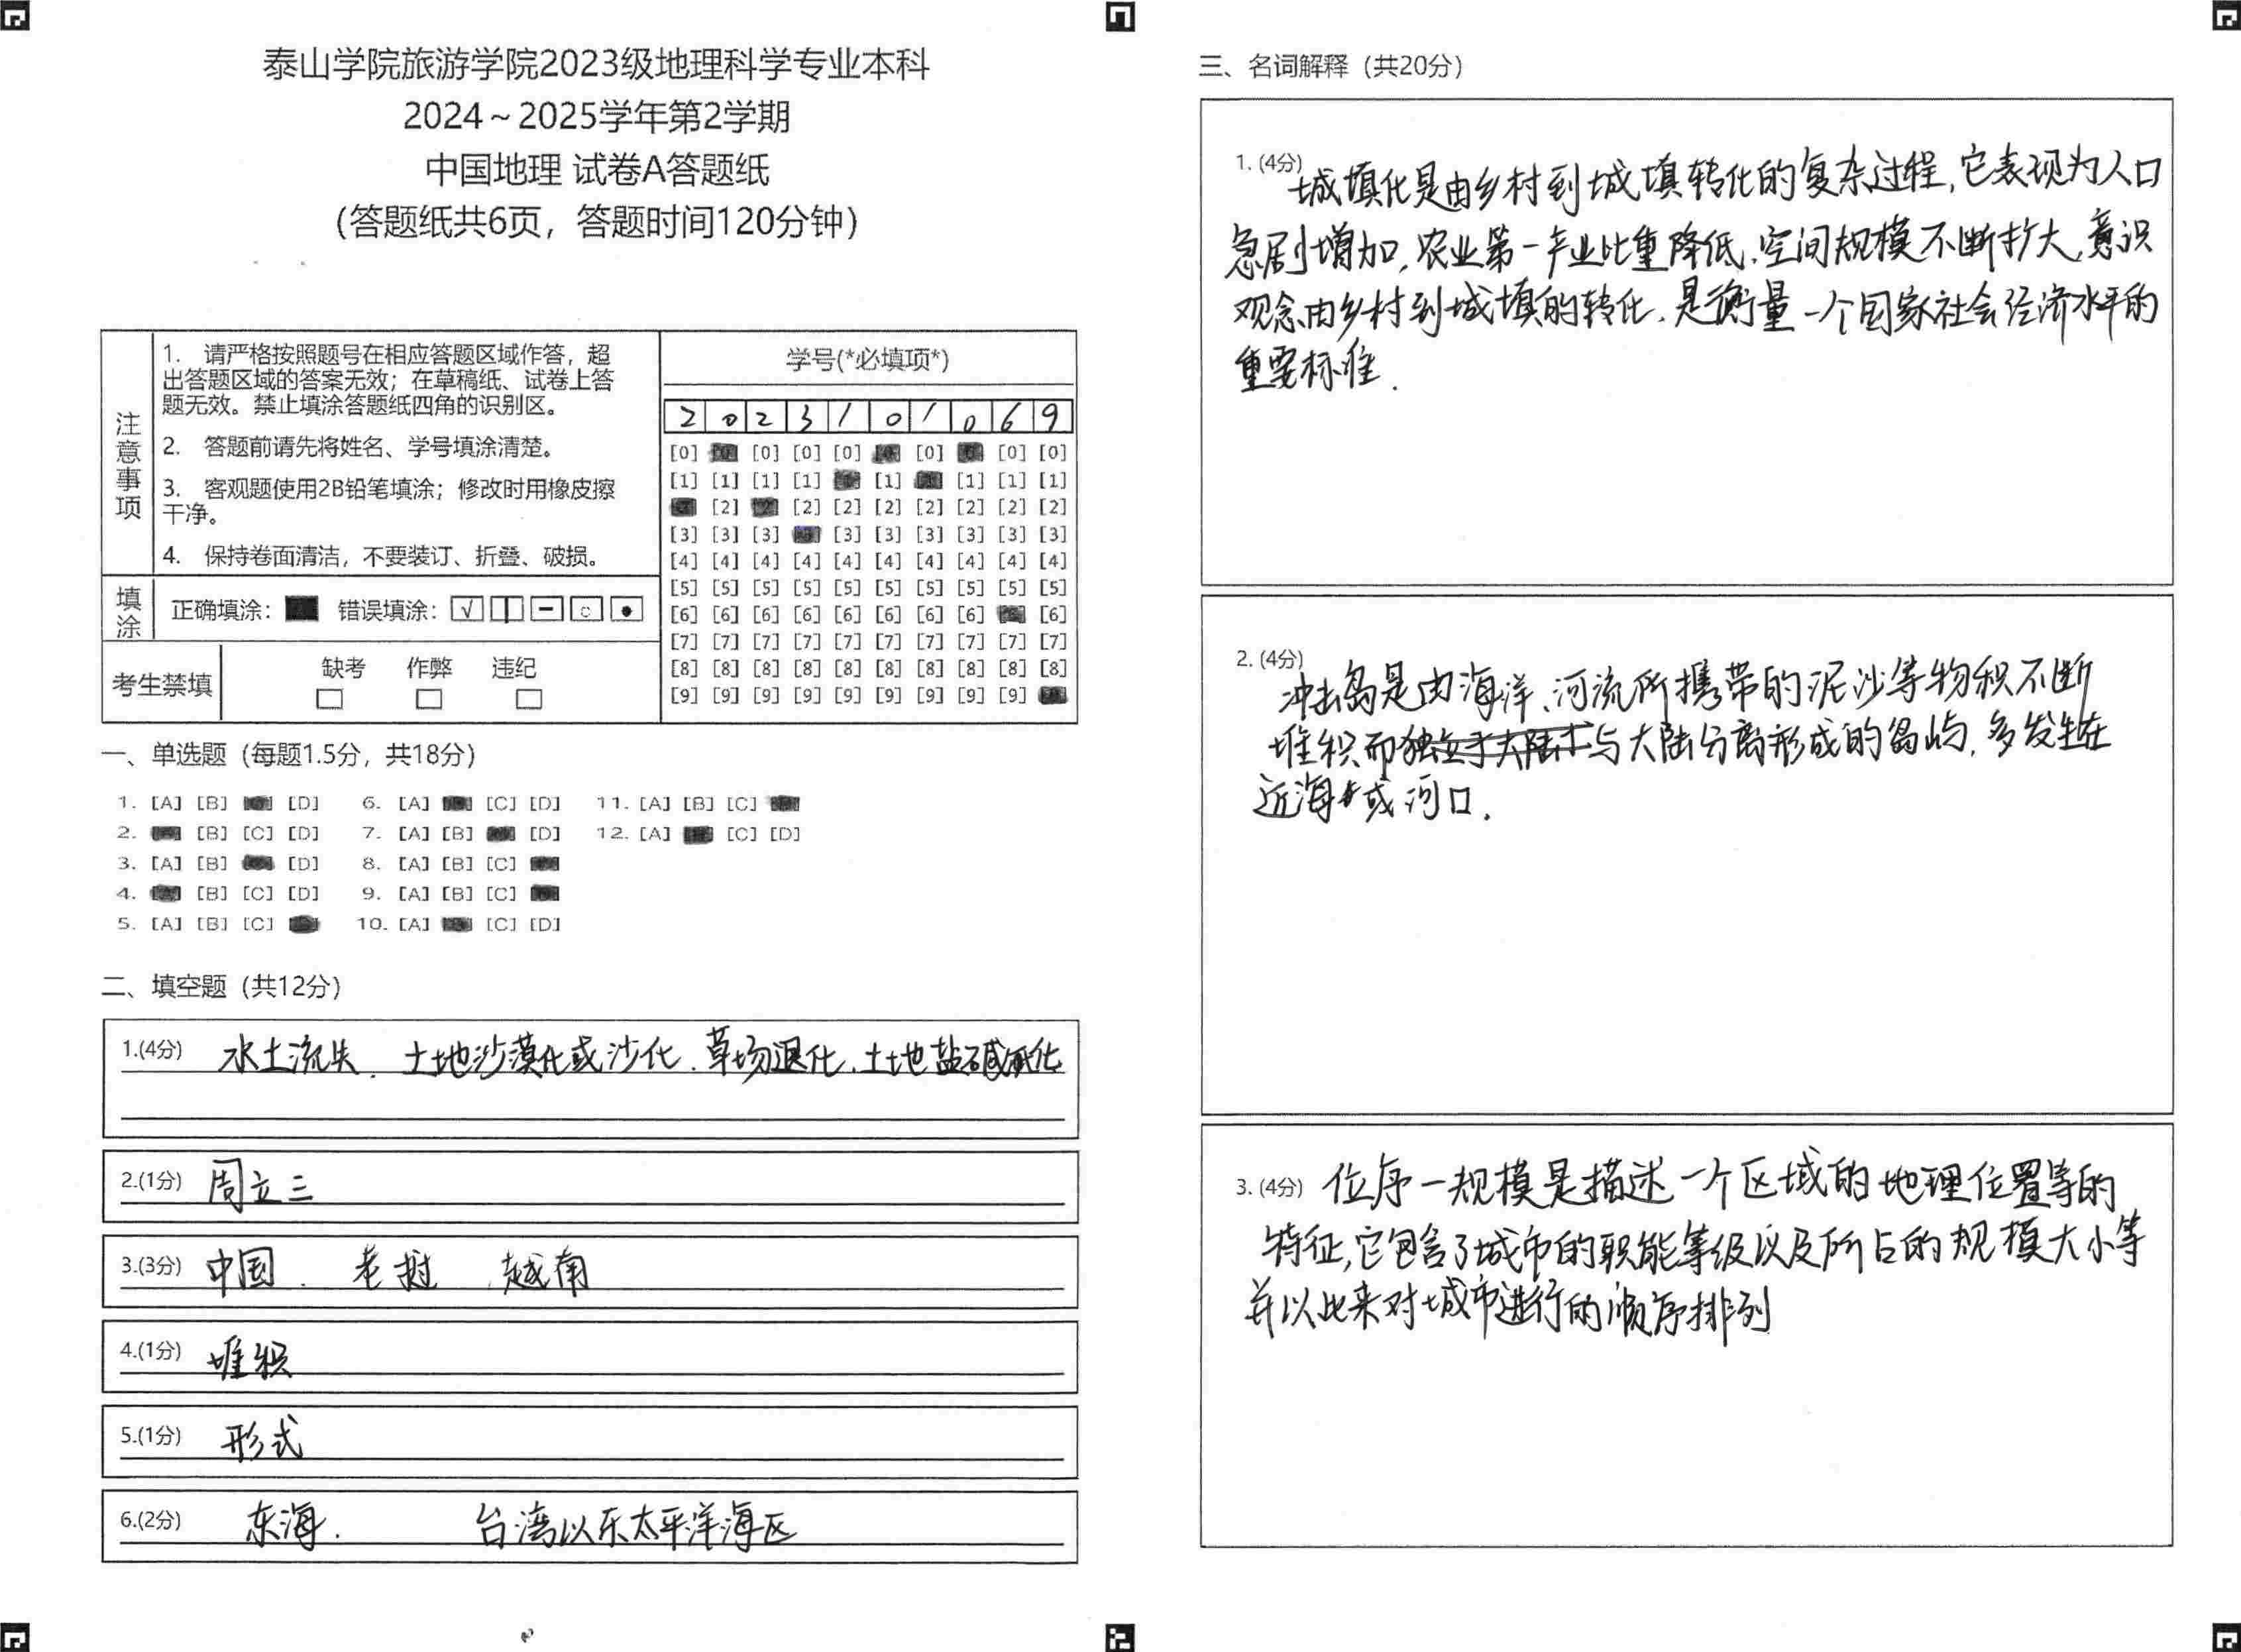 泰山学院旅游学院2023级地理科学专业本科
2024～2025学年第2学期
中国地理 试卷A答题纸
（答题纸共6页，答题时间120分钟）
注意事项
1. 请严格按照题号在相应答题区域作答，超
出答题区域的答案无效；在草稿纸、试卷上答
题无效。禁止填涂答题纸四角的识别区。
2. 答题前请先将姓名、学号填涂清楚。
3. 客观题使用2B铅笔填涂；修改时用橡皮擦
干净。
4. 保持卷面清洁，不要装订、折叠、破损。
填涂 正确填涂： 错误填涂：
考生禁填 缺考 作弊 违纪
学号(*必填项*)
2 0 2 3 1 0 1 0 6 9
[0] [0] [0] [0] [0] [0] [0]
[1] [1] [1] [1] [1] [1] [1] [1]
[2] [2] [2] [2] [2] [2] [2] [2]
[3] [3] [3] [3] [3] [3] [3] [3] [3]
[4] [4] [4] [4] [4] [4] [4] [4] [4] [4]
[5] [5] [5] [5] [5] [5] [5] [5] [5] [5]
[6] [6] [6] [6] [6] [6] [6] [6] [6]
[7] [7] [7] [7] [7] [7] [7] [7] [7] [7]
[8] [8] [8] [8] [8] [8] [8] [8] [8] [8]
[9] [9] [9] [9] [9] [9] [9] [9] [9]
一、单选题（每题1.5分，共18分）
1. [A] [B] [D] 6. [A] [C] [D] 11. [A] [B] [C]
2. [B] [C] [D] 7. [A] [B] [D] 12. [A] [C] [D]
3. [A] [B] [D] 8. [A] [B] [C]
4. [B] [C] [D] 9. [A] [B] [C]
5. [A] [B] [C] 10. [A] [C] [D]
二、填空题（共12分）
1.(4分) 水土流失、土地沙漠化或沙化、草场退化、土地盐碱化
2.(1分) 周立三
3.(3分) 中国、老挝、越南
4.(1分) 堆积
5.(1分) 形式
6.(2分) 东海． 台湾以东太平洋海区
三、名词解释（共20分）
1. (4分) 城填化是由乡村到城填转化的复杂过程，它表现为人口
急剧增加，农业第一产业比重降低、空间规模不断扩大，意识
观念由乡村到城填的转化．是衡量一个国家社会经济水平的
重要标准．
2. (4分) 冲击岛是由海洋、河流所携带的泥沙等物积不断
堆积而与大陆分离形成的岛屿，多发生在
近海或河口．
3. (4分) 位序一规模是描述一个区域的地理位置等的
特征，它包含了城市的职能等级以及所占的规模大小等
并以此来对城市进行的顺序排列